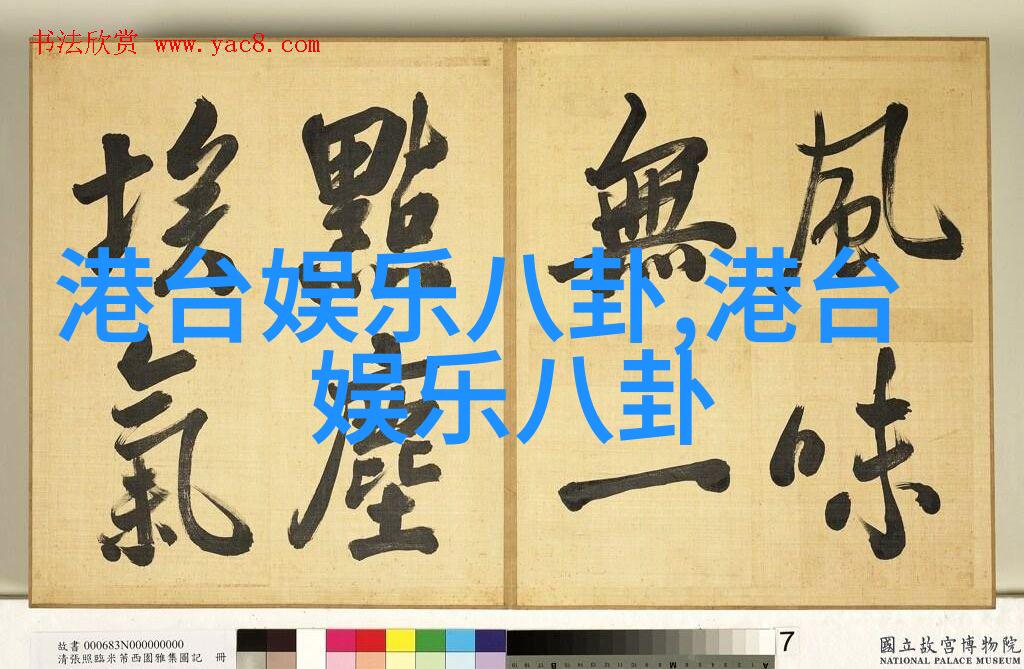 书法欣赏 www.yac8.com
風味
無一
點塵
埃氣
港台娱乐八卦,港台
娱乐八卦
故書 000683N000000000
清張照臨米芾西園雅集圖記 冊
7
國立故宮博物院
NATIONAL PALACE MUSEUM